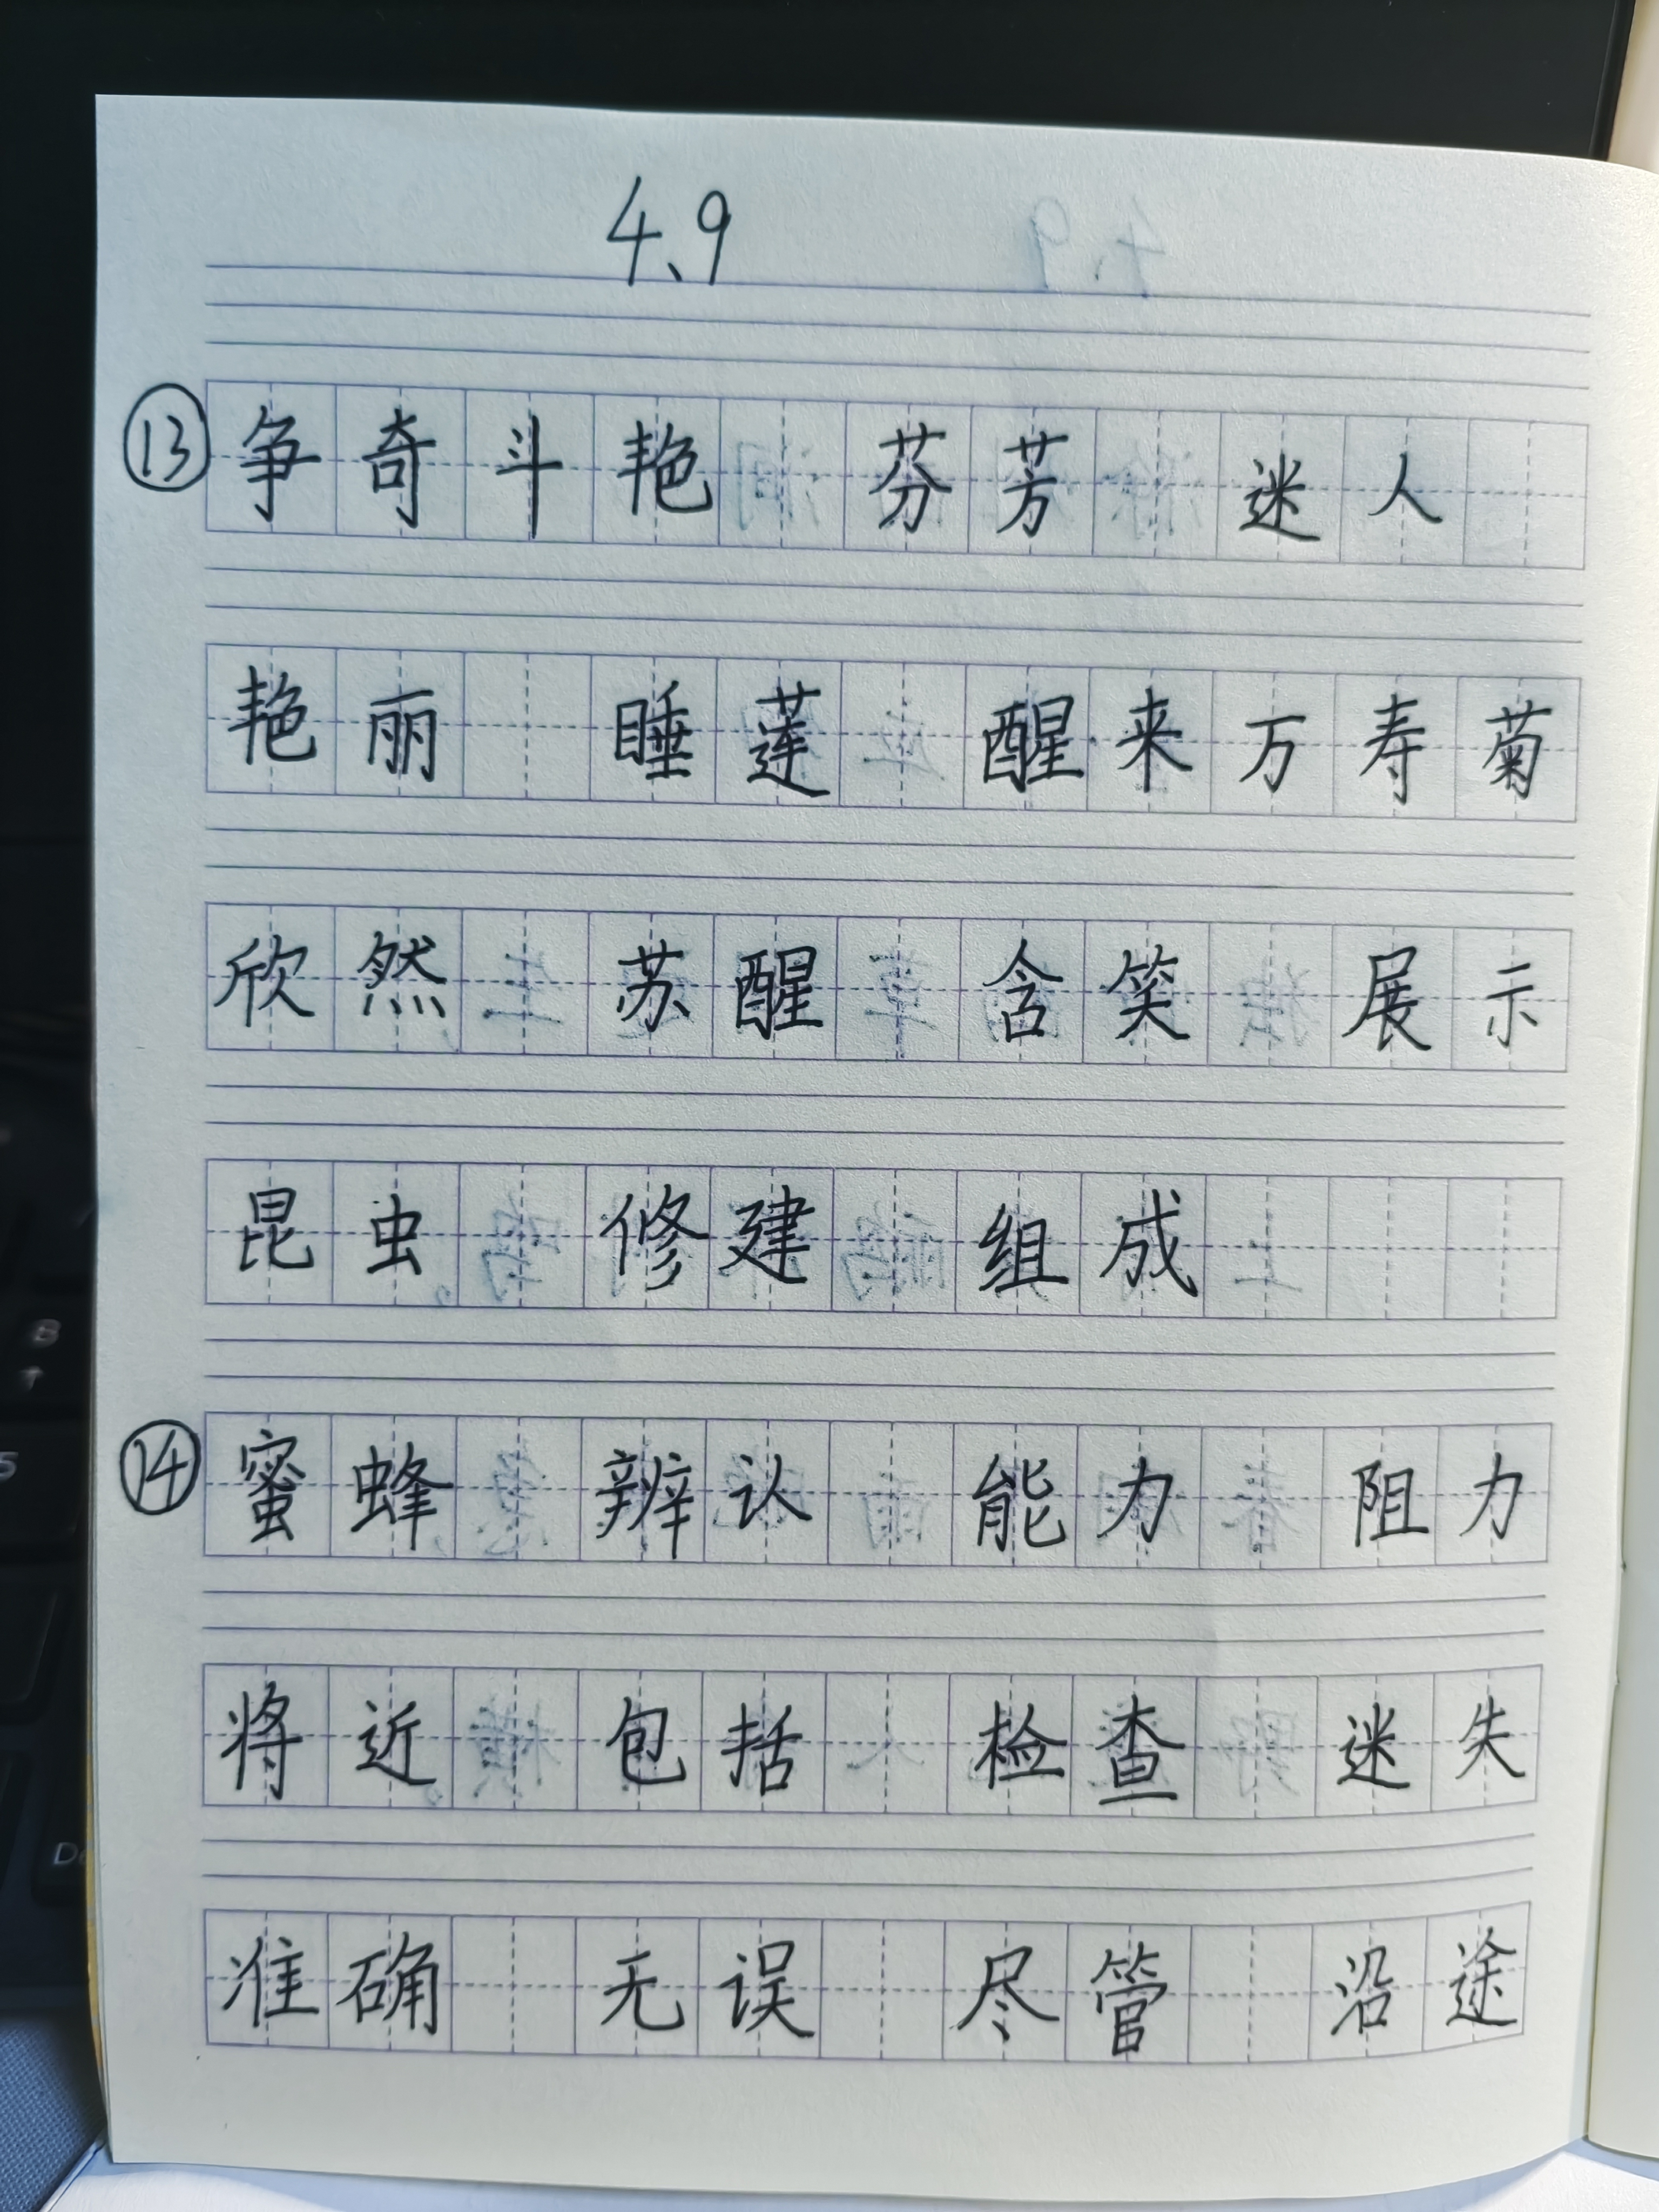 4、9
⑬ 争奇斗艳 芬芳 迷人
艳丽 睡莲 醒来万寿菊
欣然 苏醒 含笑 展示
昆虫 修建 组成
⑭ 蜜蜂 辨认 能力 阻力
将近 包括 检查 迷失
准确 无误 尽管 沿途